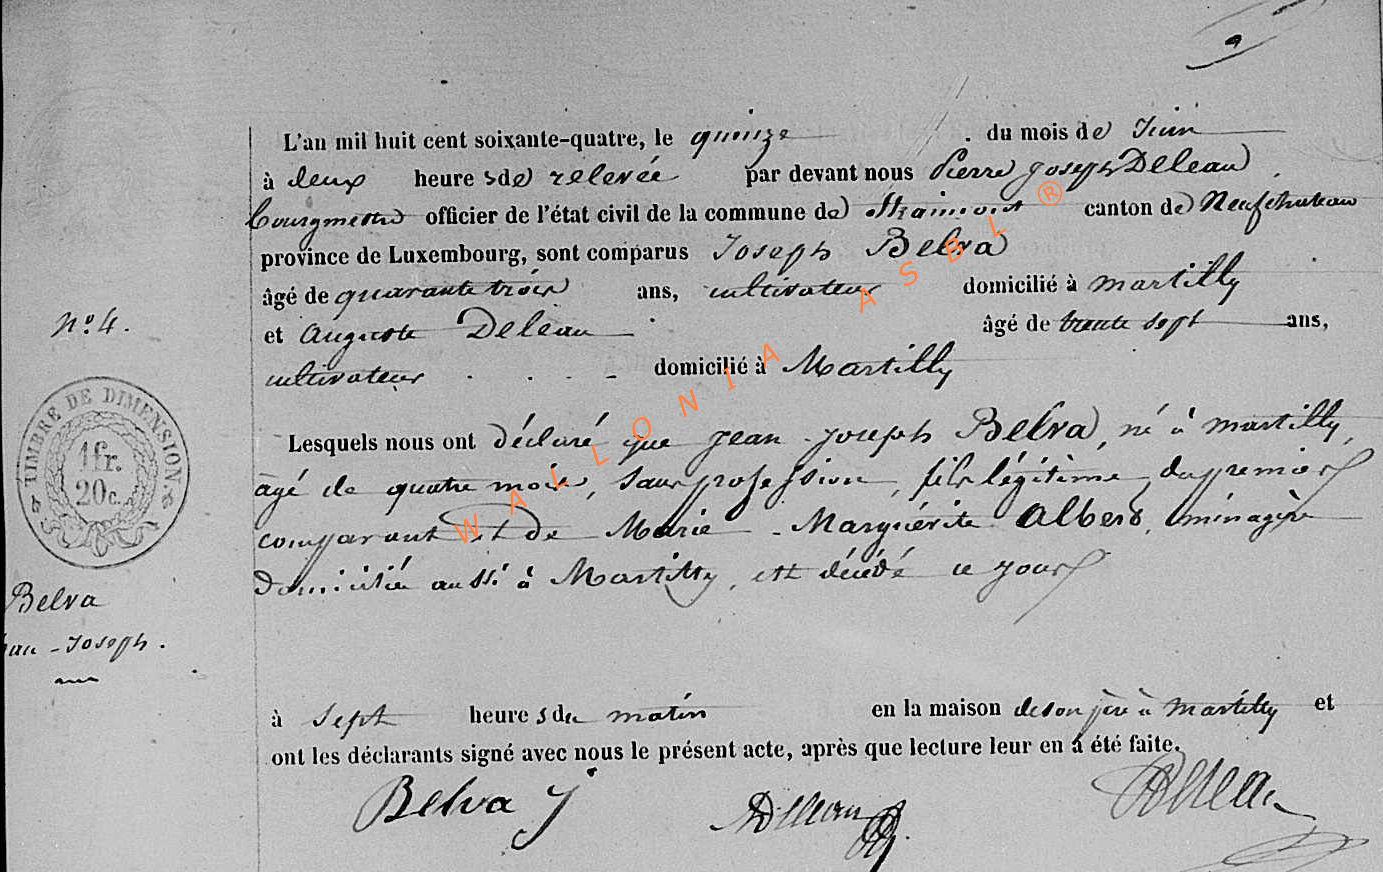 L'an mil huit cent soixante-quatre, le quinze du mois de Juin
à deux heures de relevée par devant nous Pierre Joseph Deleau
bourgmestre officier de l'état civil de la commune de Straimont canton de Neufchateau
province de Luxembourg, sont comparus Joseph Belva
âgé de quarante trois ans, cultivateur domicilié à Martilly
et Auguste Deleau âgé de trente sept ans,
cultivateur domicilié à Martilly
Lesquels nous ont déclaré que Jean Joseph Belva, né à Martilly,
âgé de quatre mois, sans profession, fils légitime du premier
comparant et de Marie-Marguérite Albert, ménagère
domiciliée aussi à Martilly, est décédé ce jour
à sept heures du matin en la maison de son père à Martilly et
ont les déclarants signé avec nous le présent acte, après que lecture leur en a été faite.
Belva J
Deleau
Deleau
N° 4.
TIMBRE DE DIMENSION.
1 fr.
20 c.
Belva
Joseph.
WALLONIA ASBL ®